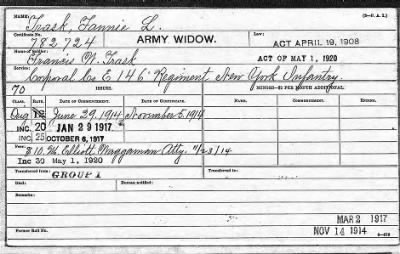 (3—C. A. I.)
Name: Trask, Fannie L.
Certificate No. 782724 ARMY WIDOW. Law: ACT APRIL 19, 1908
Name of Soldier: Francis W. Trask ACT OF MAY 1, 1920
Service: Corporal Co E 146" Regiment New York Infantry.
70 ISSUES. MINORS—$2 PER MONTH ADDITIONAL.
CLASS. RATE. DATE OF COMMENCEMENT. DATE OF CERTIFICATE. NAME. COMMENCEMENT. ENDING.
Orig 12 June 29, 1914 November 5, 1914
INC. 20 JAN 29 1917
INC. 25 OCTOBER 6, 1917
Fees: $10. M. Elliott Waggaman Atty. 11/23/14
Inc 30 May 1, 1920
Transferred from GROUP 1 Transferred to
Died: Bureau notified:
Remarks:
MAR 2 1917
Former Roll No. NOV 14 1914